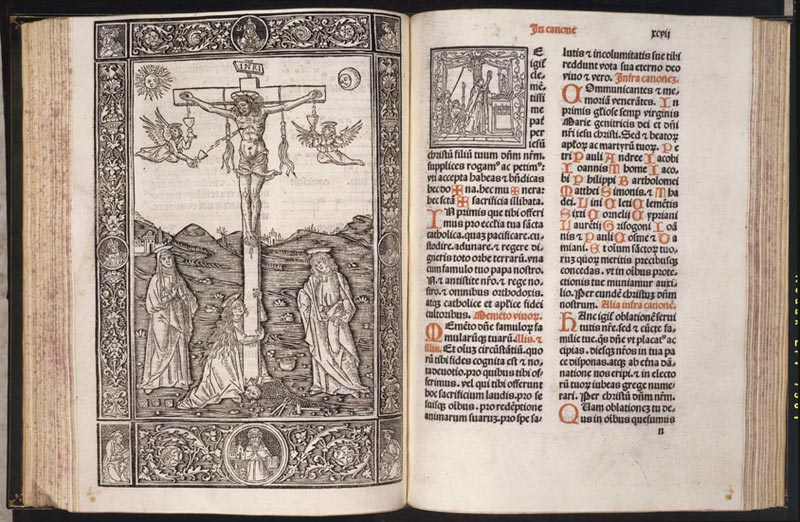 INRI
In canone
xcvii
E
igit᷑
cle-
mē-
tissi
me
pat̄
per
iesū
christū filiū tuum dn̄m nr̄m.
supplices rogamꝰ ac petimꝰ:
vti accepta habeas ⁊ bn̄dicas
hec do✠na. hec mu✠nera:
hec sctā✠ sacrificia illibata.
IN primis que tibi offeri
mus pro ecclīa tua sctā
catholica. quaꝫ pacificare. cu-
stodire. adunare. ⁊ regere di-
gneris toto orbe terraꝝ. vna
cum famulo tuo papa nostro.
N. ⁊ antistite nr̄o. ⁊ rege no-
stro. ⁊ omnibus orthodoxis.
atqꝫ catholice et apl̄ice fidei
cultoribus. Memēto viuoꝝ.
MEmēto dn̄e famuloꝝ fa
mularūqꝫ tuarū. illis. ⁊
illis. Et oīuꝫ circūstātiū. quo
rū tibi fides cognita est ⁊ no-
ta deuotio. pro quibus tibi of-
ferimus. vel qui tibi offerunt
hoc sacrificium laudis. pro se
suisqꝫ oībus. pro redēptione
animarum suaruꝫ. pro spe sa-
lutis ⁊ incolumitatis sue tibi
reddunt vota sua eterno deo
viuo ⁊ vero. Infra canoneꝫ.
COmmunicantes ⁊ me-
moriā venerātes. In
primis gl̄iose semp̄ virginis
Marie genitricis dei et dn̄i
nr̄i iesu christi. Sed ⁊ beatoꝝ
apl̄oꝝ ac martyrū tuoꝝ. Pe
tri Pauli Andree Jacobi
Joannis Thome Jaco-
bi Philippi Bartholomei
Matthei Simonis. ⁊ Tha
dei. Lini Cleti Clemētis
Sixti Cornelij Cypriani
Laurētij Grisogoni Joā
nis ⁊ Pauli Cosme ⁊ Da
miani. Et oīum sāctoꝝ tuo-
ruꝫ quoꝝ meritis precibusqꝫ
concedas. vt in oībus prote-
ctionis tue muniamur auxi-
lio. Per eundē christuꝫ dn̄m
nostrum. Alia infra canonē.
HAnc igit᷑ oblationē serui
tutis nr̄e. sed ⁊ cūcte fa-
milie tue. qs̄ dn̄e vt placatꝰ ac
cipias. diesqꝫ nr̄os in tua pa
ce disponas. atqꝫ ab etna dā-
natione nos eripi. ⁊ in electo
rū tuoꝝ iubeas grege nume-
rari. Per christū dn̄m nr̄m.
QUam oblationeꝫ tu de-
us in oībus quesumus
n